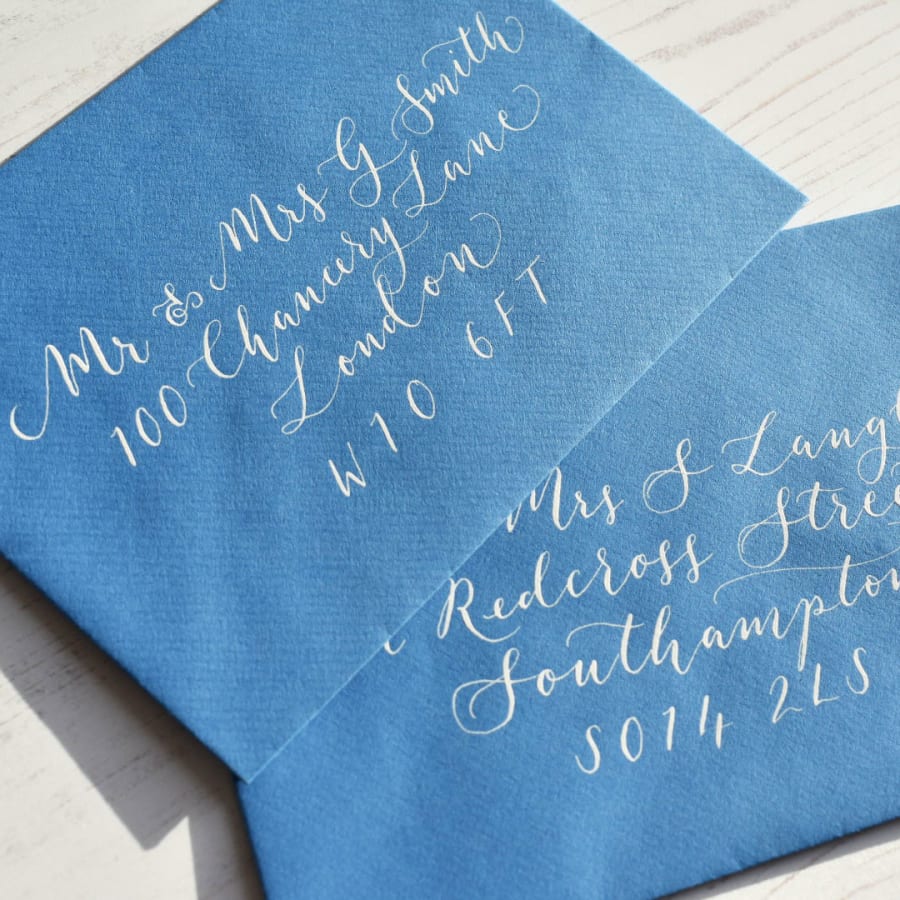 Mr & Mrs G Smith
100 Chancery Lane
London
W10 6FT
Mrs S Langl
Redcross Stree
Southampton
SO14 2LS